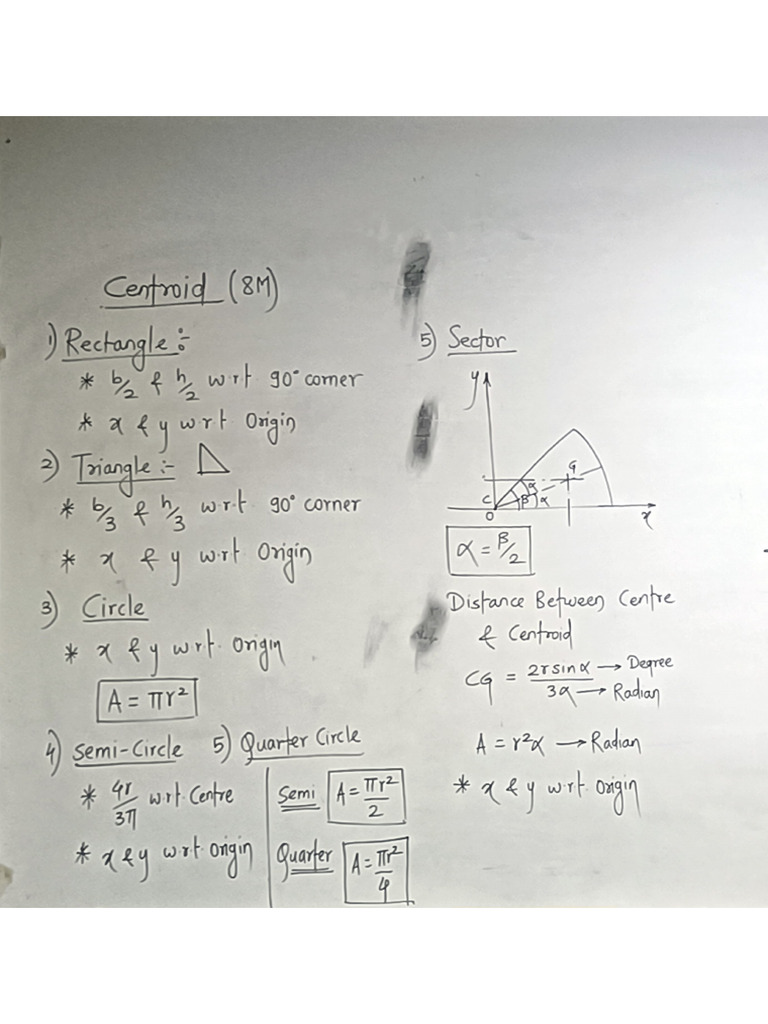 Centroid (8M)
1) Rectangle :-
* b/2 & h/2 w.r.t 90° corner
* x & y w.r.t Origin
2) Triangle :-
* b/3 & h/3 w.r.t 90° corner
* x & y w.r.t Origin
3) Circle
* x & y w.r.t. Origin
A = πr²
4) Semi-Circle 5) Quarter Circle
* 4r/3π w.r.t. Centre
* x & y w.r.t origin
Semi A = πr²/2
Quarter A = πr²/4
5) Sector
y
G
α
C β α
O
x
α = β/2
Distance Between Centre
& Centroid
CG = 2r sin α → Degree
3α → Radian
A = r²α → Radian
* x & y w.r.t. Origin